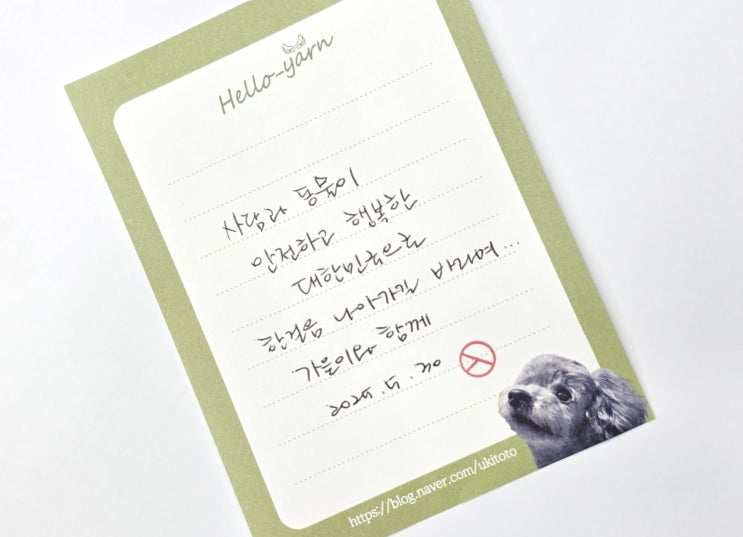 Hello-yarn
사람과 동물이
안전하고 행복한
대한민국으로
한걸음 나아가길 바라며...
가을이와 함께
2025. 5. 20
https://blog.naver.com/ukitoto